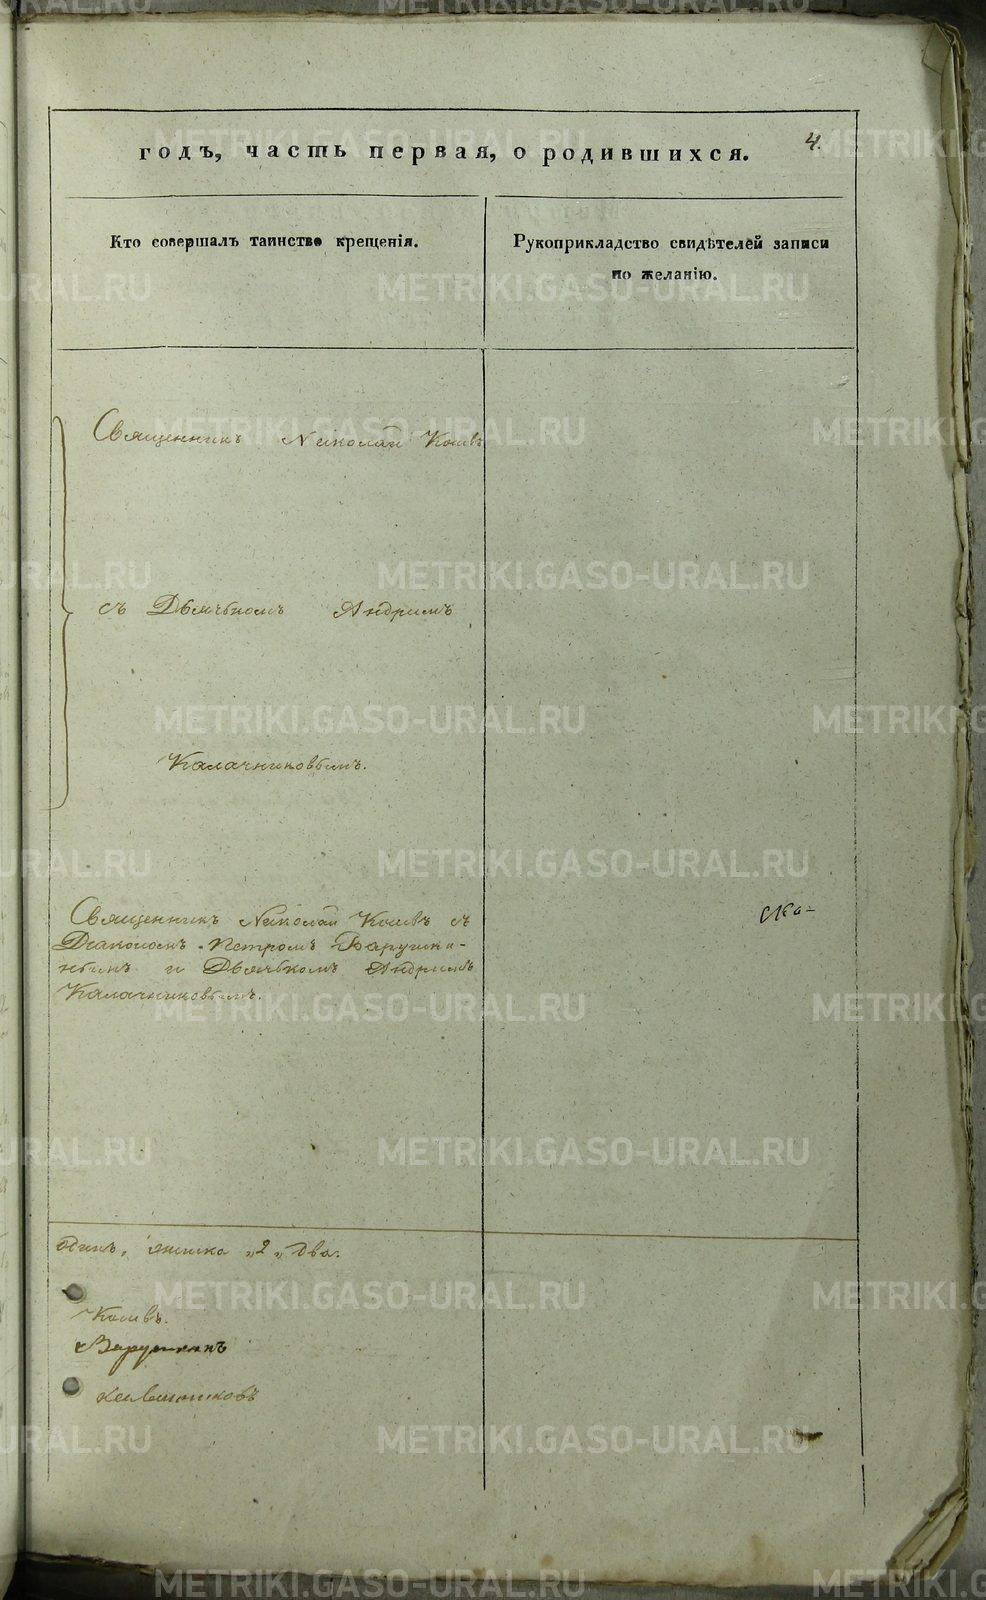 годъ, часть первая, о родившихся.
4.
Кто совершалъ таинство крещенія.
Рукоприкладство свидѣтелей записи
по желанію.
Священникъ Николай
съ Дьячкомъ Андріемъ
Калачниковымъ.
Священникъ Николай съ
Діакономъ Петромъ
и Дьячкомъ Андріемъ
Калачниковымъ.
Ска-
одинъ, „2„ два.
METRIKI.GASO-URAL.RU